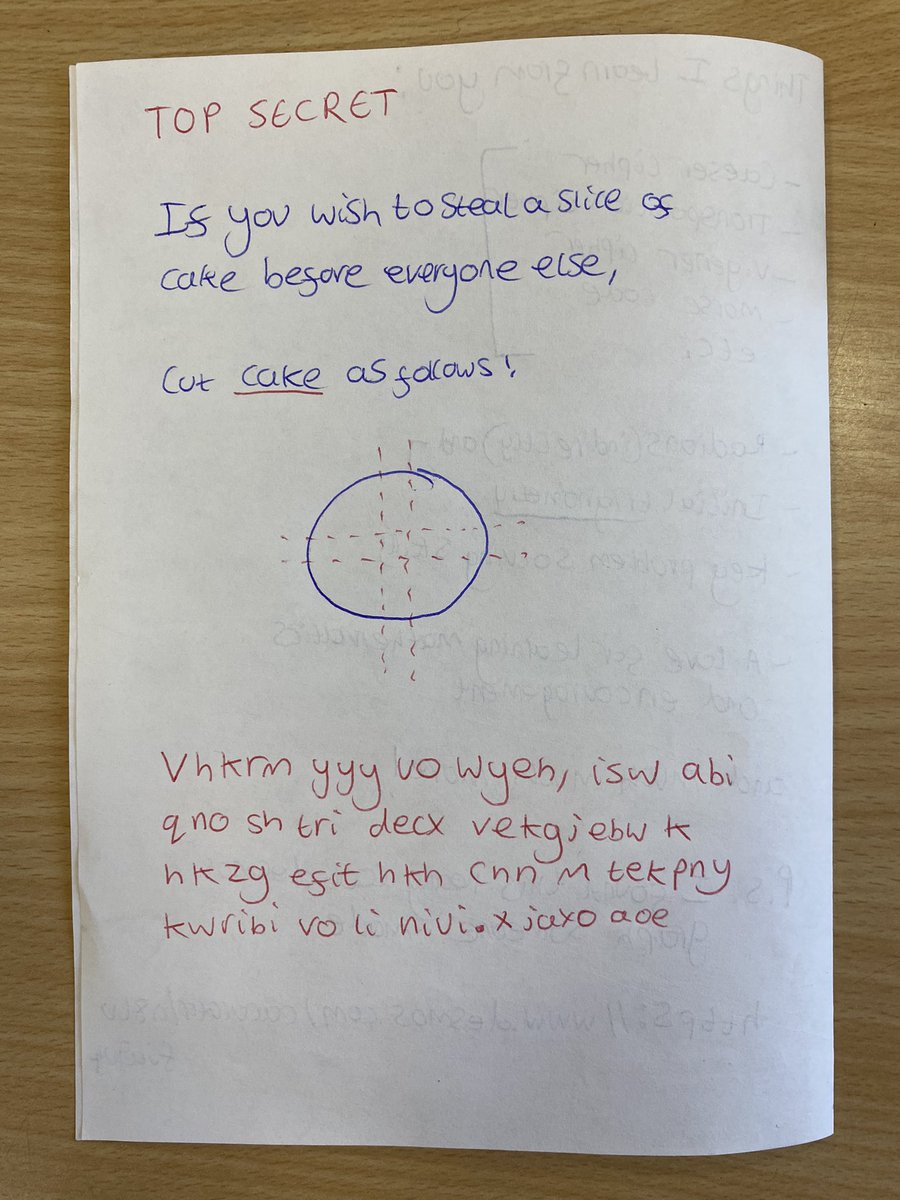 TOP SECRET
If you wish to steal a slice of
cake before everyone else,
Cut cake as follows!
Vhkrm yyy vo wyeh, isw abi
qno sh tri decx vekgjebw k
hkzg efit hkh cnn m tekpny
kwribi vo li niui. x jaxo aoe